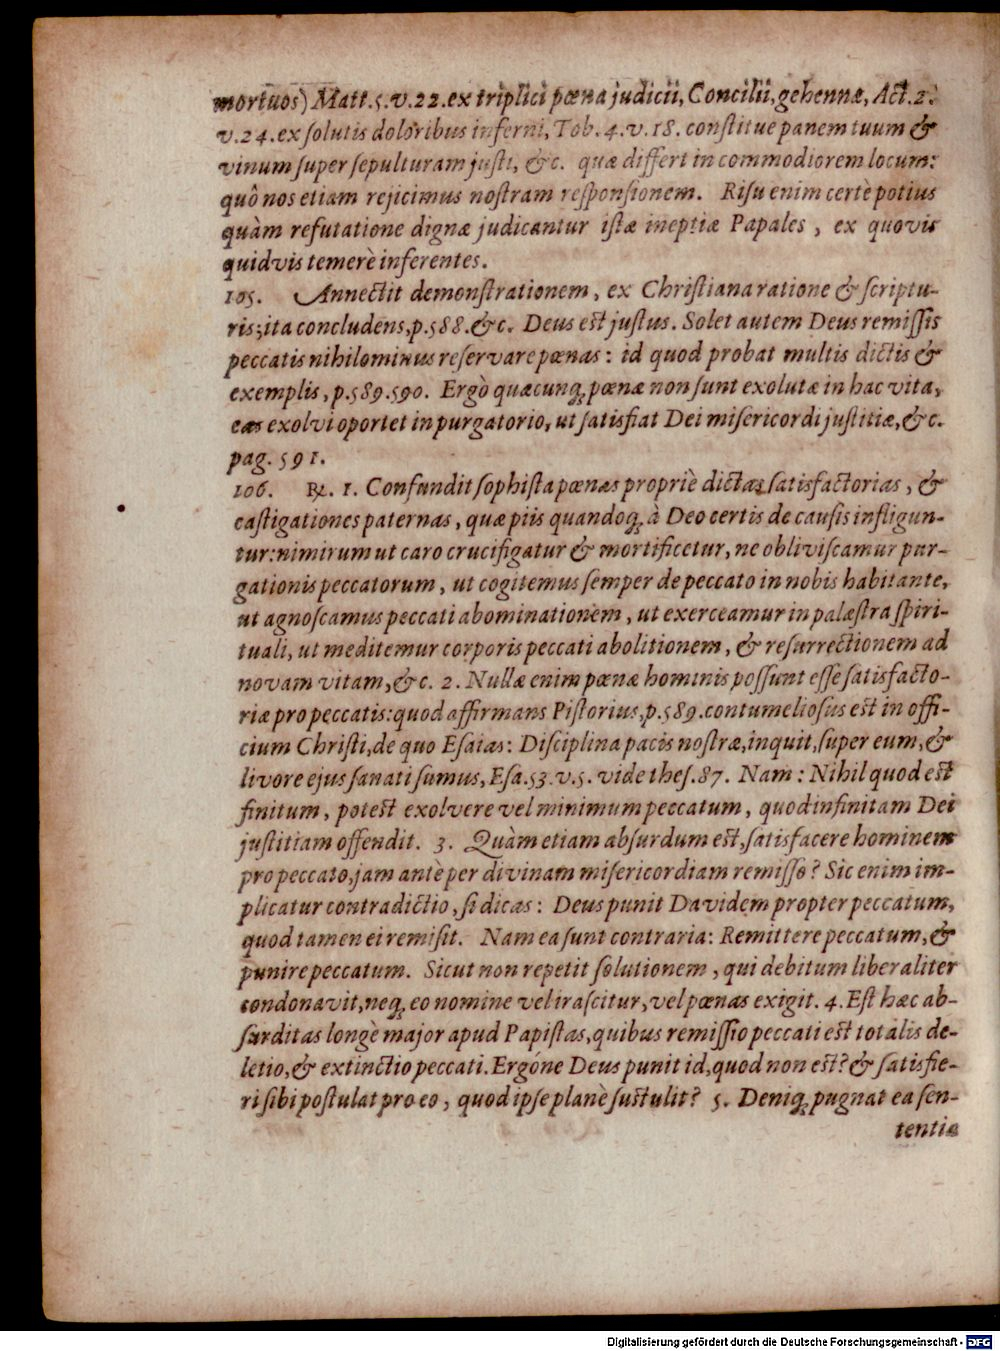 mortuos) Matt.5.v.22.ex triplici pœna judicii, Concilii, gehennæ, Act.2.
v.24.ex solutis doloribus inferni, Tob. 4.v.18. constitue panem tuum &
vinum super sepulturam justi, &c. quæ differt in commodiorem locum:
quô nos etiam rejicimus nostram responsionem. Risu enim certè potius
quàm refutatione dignæ judicantur istæ ineptiæ Papales, ex quovis
quidvis temerè inferentes.
105. Annectit demonstrationem, ex Christiana ratione & scriptu-
ris; ita concludens, p.588.&c. Deus est justus. Solet autem Deus remissis
peccatis nihilominus reservare pœnas: id quod probat multis dictis &
exemplis, p.589.590. Ergò quæcunq; pœnæ non sunt exolutæ in hac vita,
eas exolvi oportet in purgatorio, ut satisfiat Dei misericordi justitiæ, &c.
pag. 591.
106. ℞. 1. Confundit sophista pœnas propriè dictas satisfactorias, &
castigationes paternas, quæ piis quandoq; à Deo certis de causis infligun-
tur: nimirum ut caro crucifigatur & mortificetur, ne obliviscamur pur-
gationis peccatorum, ut cogitemus semper de peccato in nobis habitante,
ut agnoscamus peccati abominationem, ut exerceamur in palæstra spiri-
tuali, ut meditemur corporis peccati abolitionem, & resurrectionem ad
novam vitam, &c. 2. Nullæ enim pœnæ hominis possunt esse satisfacto-
riæ pro peccatis: quod affirmans Pistorius, p.589. contumeliosus est in offi-
cium Christi, de quo Esaias: Disciplina pacis nostræ, inquit, super eum, &
livore ejus sanati sumus, Esa.53.v.5. vide thes.87. Nam: Nihil quod est
finitum, potest exolvere vel minimum peccatum, quod infinitam Dei
justitiam offendit. 3. Quàm etiam absurdum est, satisfacere hominem
pro peccato, jam antè per divinam misericordiam remisso? Sic enim im-
plicatur contradictio, si dicas: Deus punit Davidem propter peccatum,
quod tamen ei remisit. Nam ea sunt contraria: Remittere peccatum, &
punire peccatum. Sicut non repetit solutionem, qui debitum liberaliter
condonavit, neq; eo nomine vel irascitur, vel pœnas exigit. 4. Est hæc ab-
surditas longè major apud Papistas, quibus remissio peccati est totalis de-
letio, & extinctio peccati. Ergóne Deus punit id, quod non est? & satisfie-
ri sibi postulat pro eo, quod ipse planè sustulit? 5. Deniq; pugnat ea sen-
tentia
Digitalisierung gefördert durch die Deutsche Forschungsgemeinschaft - DFG